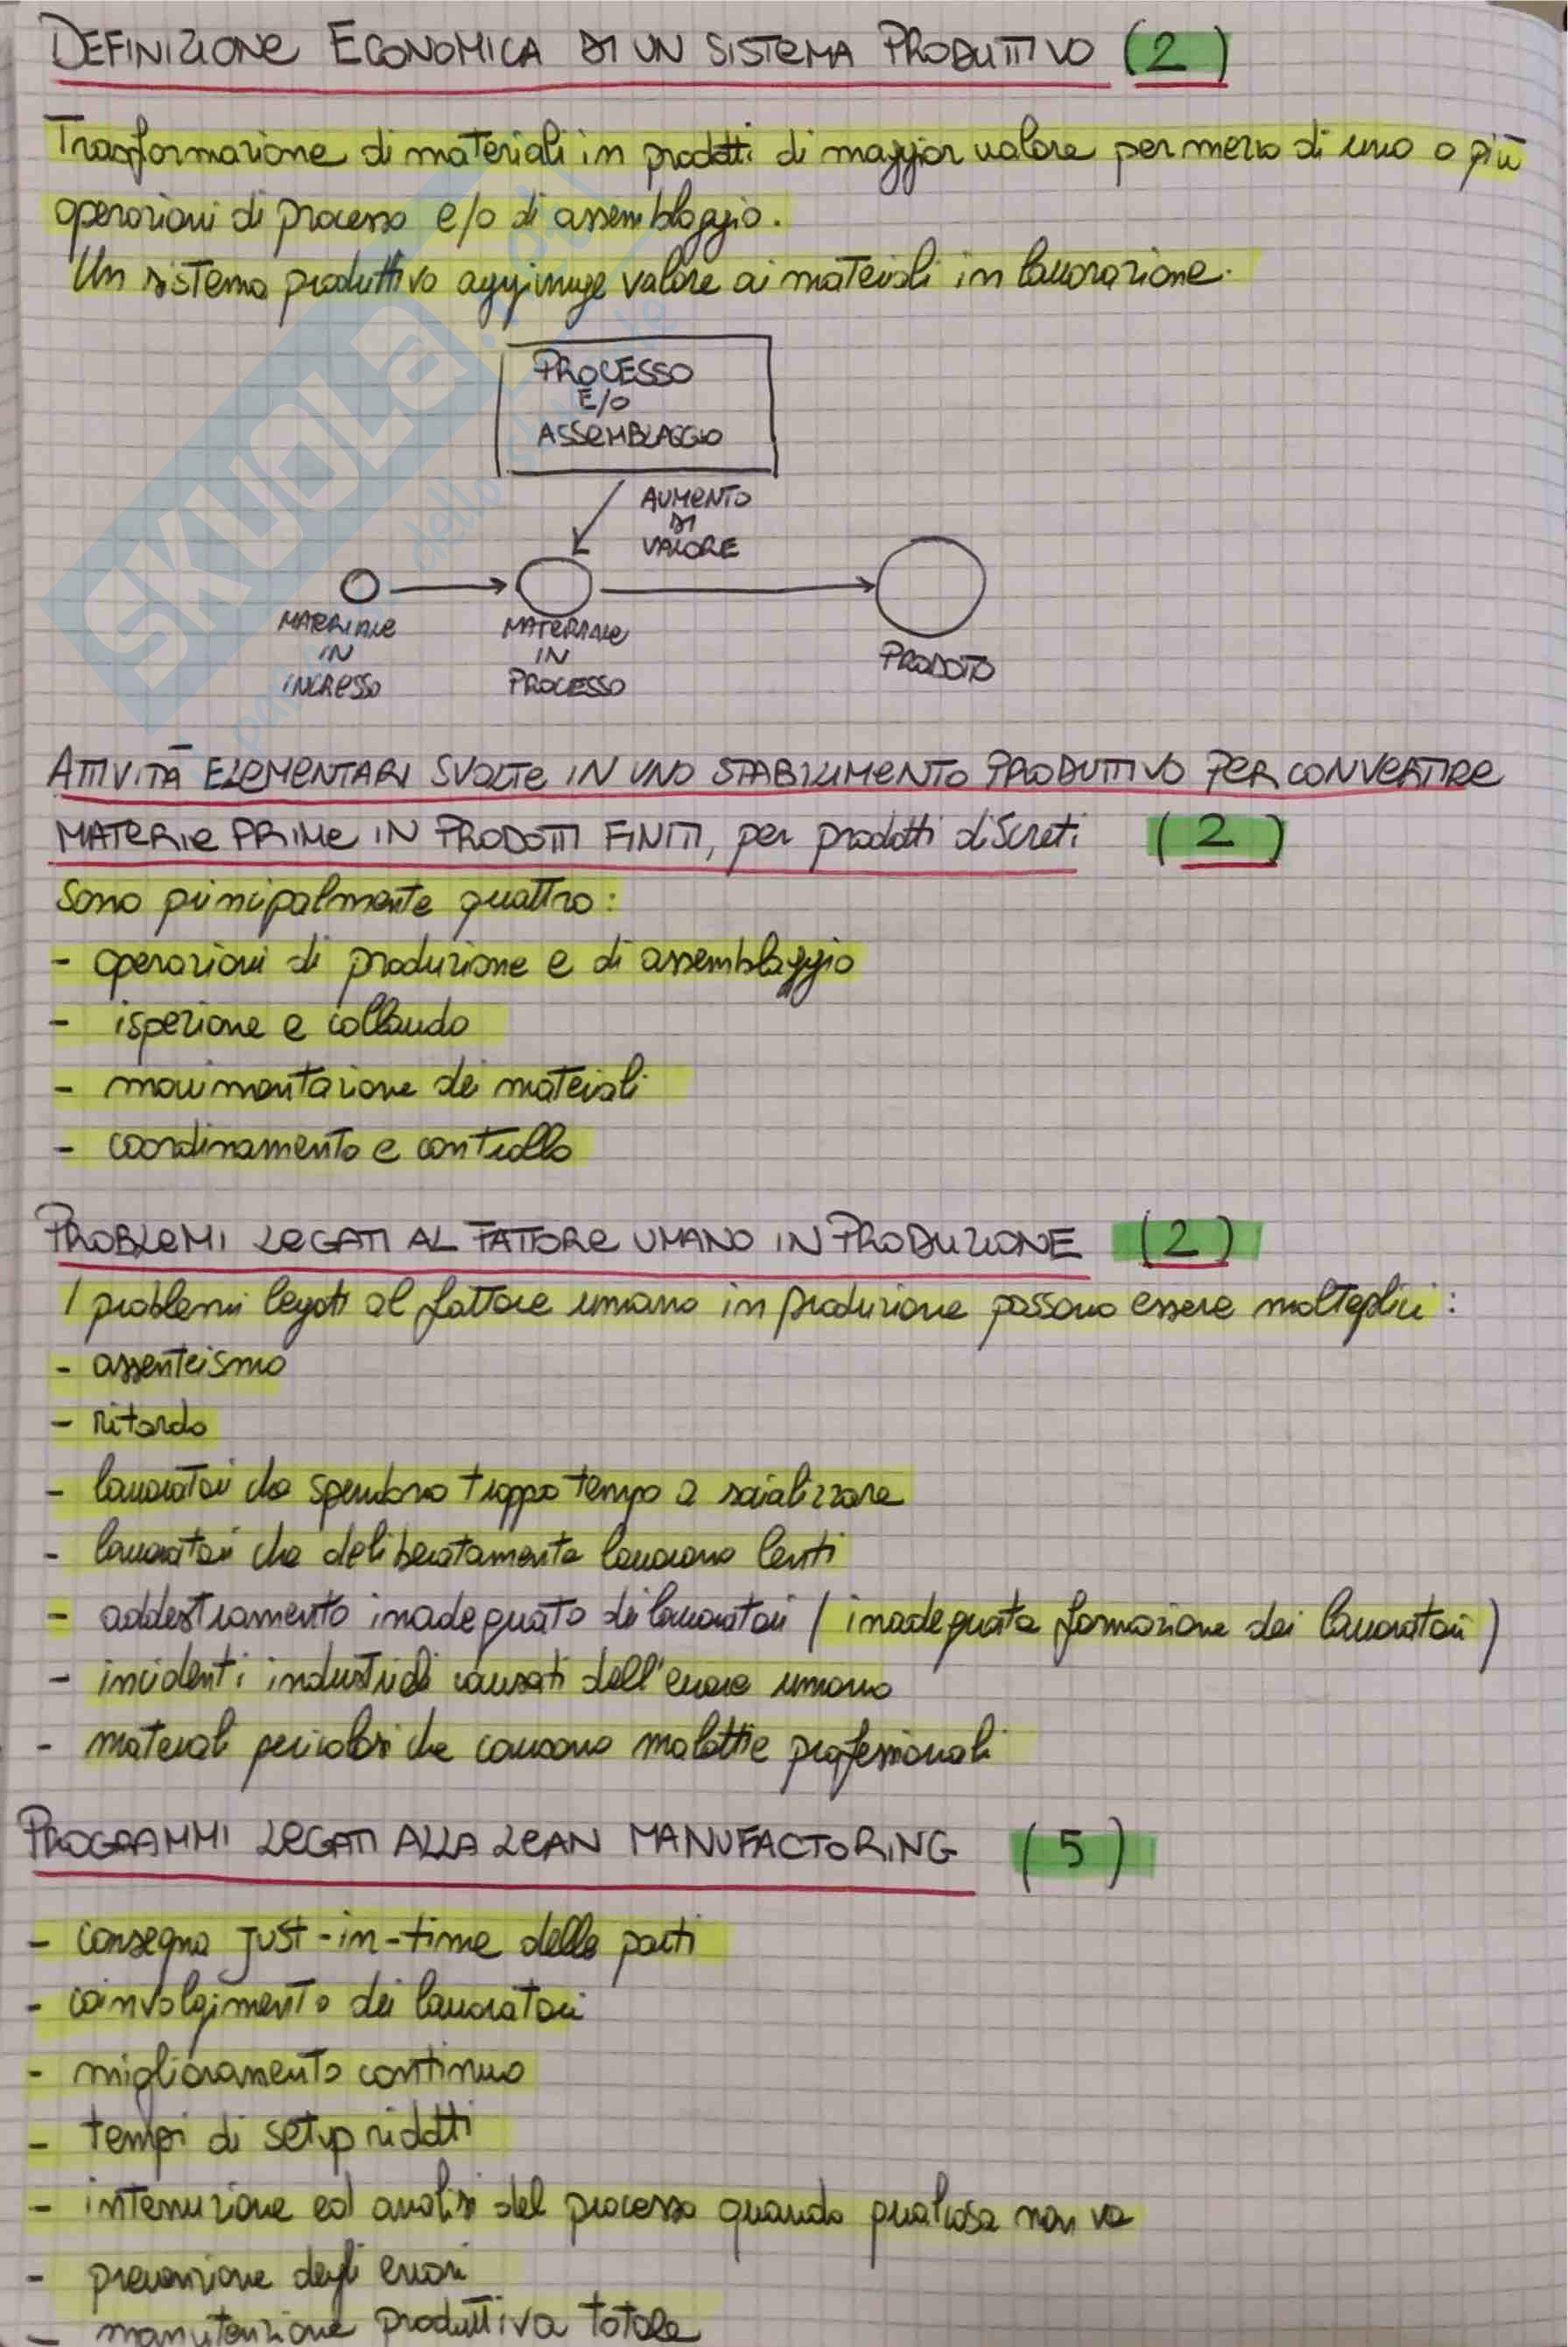 DEFINIZIONE ECONOMICA DI UN SISTEMA PRODUTTIVO (2)
Trasformazione di materiali in prodotti di maggior valore per mezzo di uno o più
operazioni di processo e/o di assemblaggio.
Un sistema produttivo aggiunge valore ai materiali in lavorazione.
PROCESSO
E/O
ASSEMBLAGGIO
AUMENTO
DI
VALORE
MATERIALE
IN
INGRESSO
MATERIALE
IN
PROCESSO
PRODOTTO
SKUOLA
ATTIVITÀ ELEMENTARI SVOLTE IN UNO STABILIMENTO PRODUTTIVO PER CONVERTIRE
MATERIE PRIME IN PRODOTTI FINITI, per prodotti discreti (2)
Sono principalmente quattro:
- operazioni di produzione e di assemblaggio
- ispezione e collaudo
- movimentazione dei materiali
- coordinamento e controllo
PROBLEMI LEGATI AL FATTORE UMANO IN PRODUZIONE (2)
I problemi legati al fattore umano in produzione possono essere molteplici:
- assenteismo
- ritardo
- lavoratori che spendono troppo tempo a socializzare
- lavoratori che deliberatamente lavorano lenti
- addestramento inadeguato dei lavoratori (inadeguata formazione dei lavoratori)
- incidenti industriali causati dell'errore umano
- materiali pericolosi che causano malattie professionali
PROGRAMMI LEGATI ALLA LEAN MANUFACTORING (5)
- consegna just-in-time delle parti
- coinvolgimento dei lavoratori
- miglioramento continuo
- tempi di setup ridotti
- interruzione ed analisi del processo quando qualcosa non va
- prevenzione degli errori
- manutenzione produttiva totale